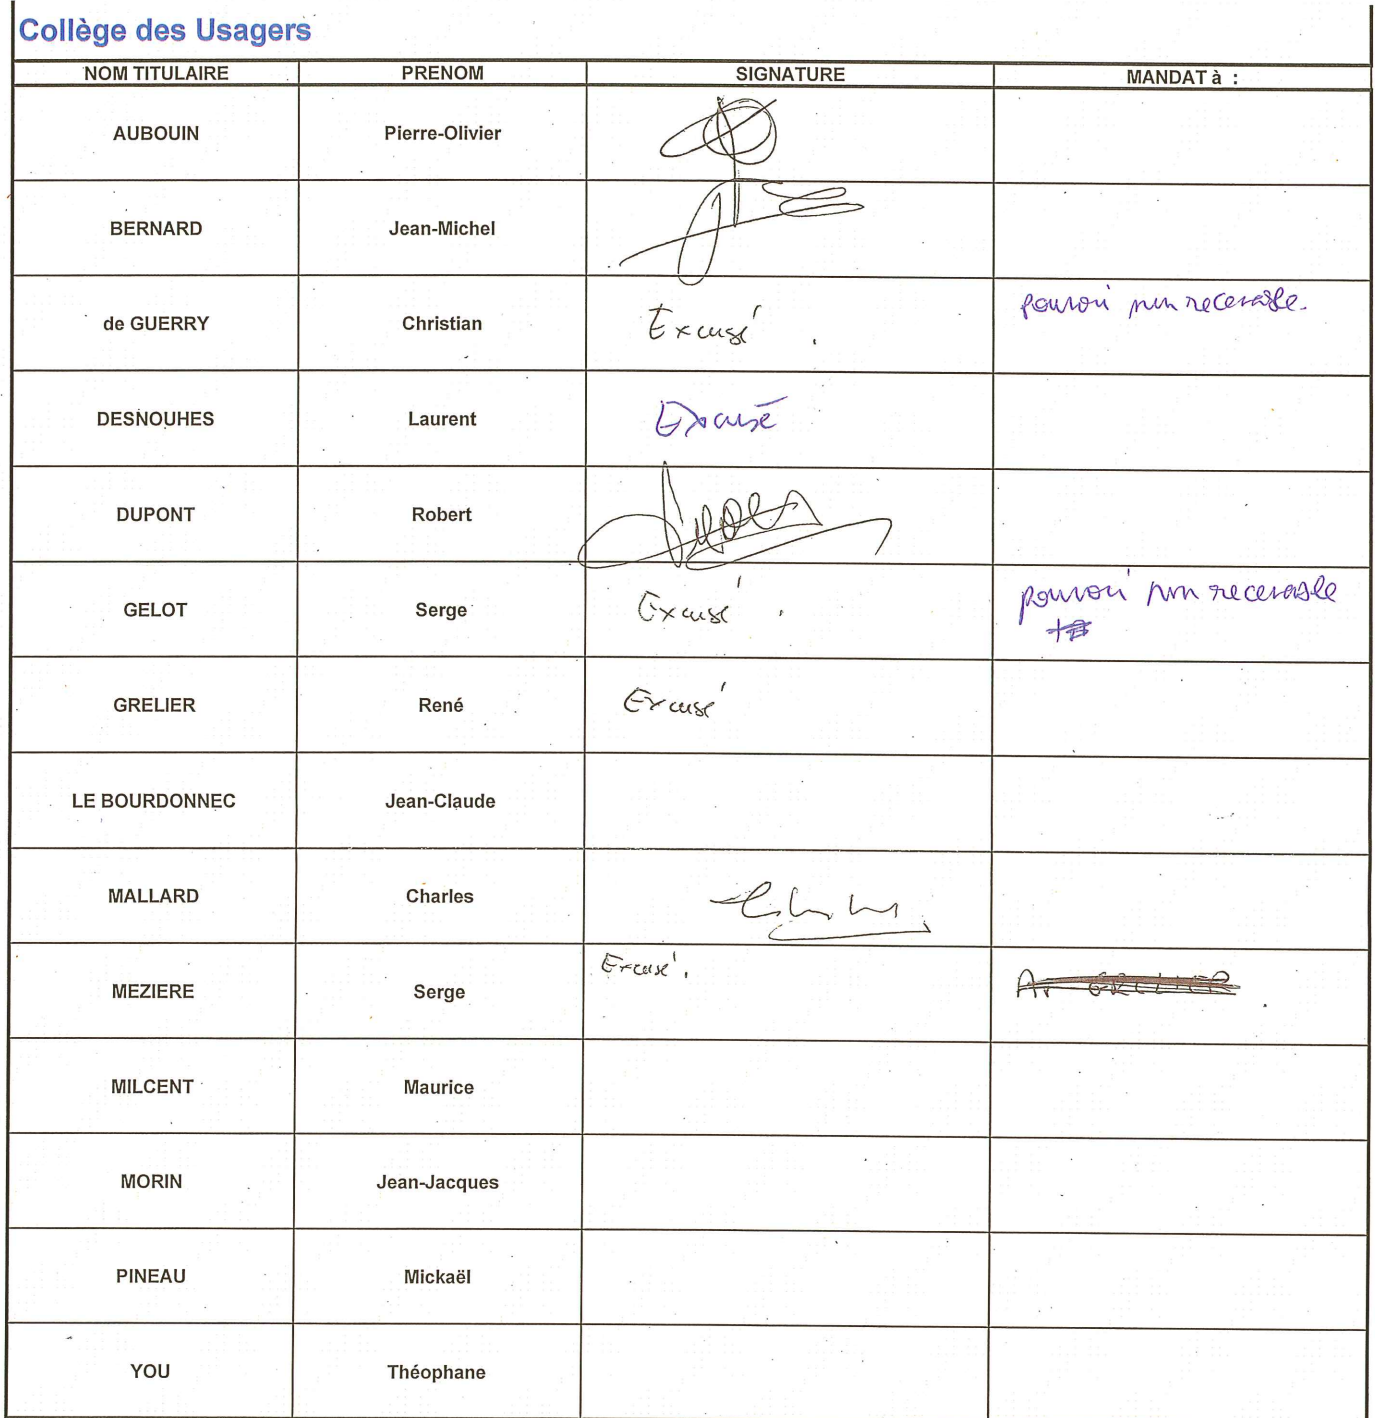 Collège des Usagers
NOM TITULAIRE PRENOM SIGNATURE MANDAT à :
AUBOUIN Pierre-Olivier
BERNARD Jean-Michel
de GUERRY Christian Excusé . pouvoir non recevable.
DESNOUHES Laurent Excusé
DUPONT Robert
GELOT Serge Excusé . pouvoir non recevable
GRELIER René Excusé
LE BOURDONNEC Jean-Claude
MALLARD Charles
MEZIERE Serge Excusé. GRELIER
MILCENT Maurice
MORIN Jean-Jacques
PINEAU Mickaël
YOU Théophane